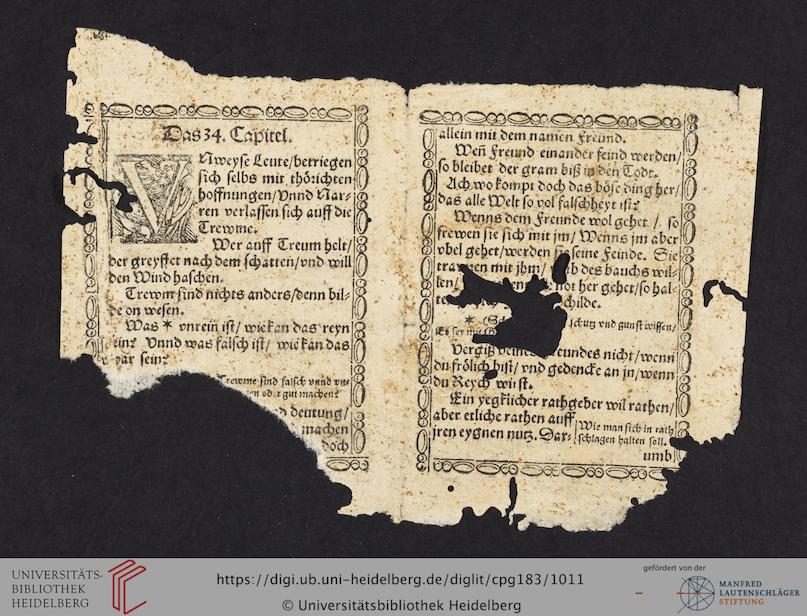 Das 34. Capitel.
VNweyse Leute/betriegen
sich selbs mit thörichten
hoffnungen/Vnnd Nar-
ren verlassen sich auff die
Trewme.
Wer auff Treum helt/
der greyffet nach dem schatten/vnd will
den Wind haschen.
Trewm sind nichts anders/denn bil-
de on wesen.
Was * vnrein ist/ wie kan das reyn
sein? Vnnd was falsch ist/ wie kan das
war sein?
Trewme sind falsch vnnd vn-
machen?
deutung/
machen
doch
allein mit dem namen Freund.
Weñ Freund einander feind werden/
so bleibet der gram biß in den Todt.
Ach wo kompt doch das böse ding her/
das alle Welt so vol falschheyt ist?
Wenns dem Freunde wol gehet /. so
frewen sie sich mit jm/ Wenns jm aber
vbel gehet/werden seine Feinde. Sie
mit jhm/ des bauchs wil-
len/ not her gehet/so hal-
childe.
* schutz vnd gunst wissen/
Es sey mit
Vergiß eundes nicht/wenn
du frölich bist/ vnd gedencke an jn/wenn
du Reych wirst.
Ein yegklicher rathgeber wil rathen/
aber etliche rathen auff
jren eygnen nutz. Dar-
Wie man sich in rath
schlagen halten soll.
umb
UNIVERSITÄTS-
BIBLIOTHEK
HEIDELBERG
https://digi.ub.uni-heidelberg.de/diglit/cpg183/1011
© Universitätsbibliothek Heidelberg
gefördert von der
MANFRED
LAUTENSCHLÄGER
STIFTUNG